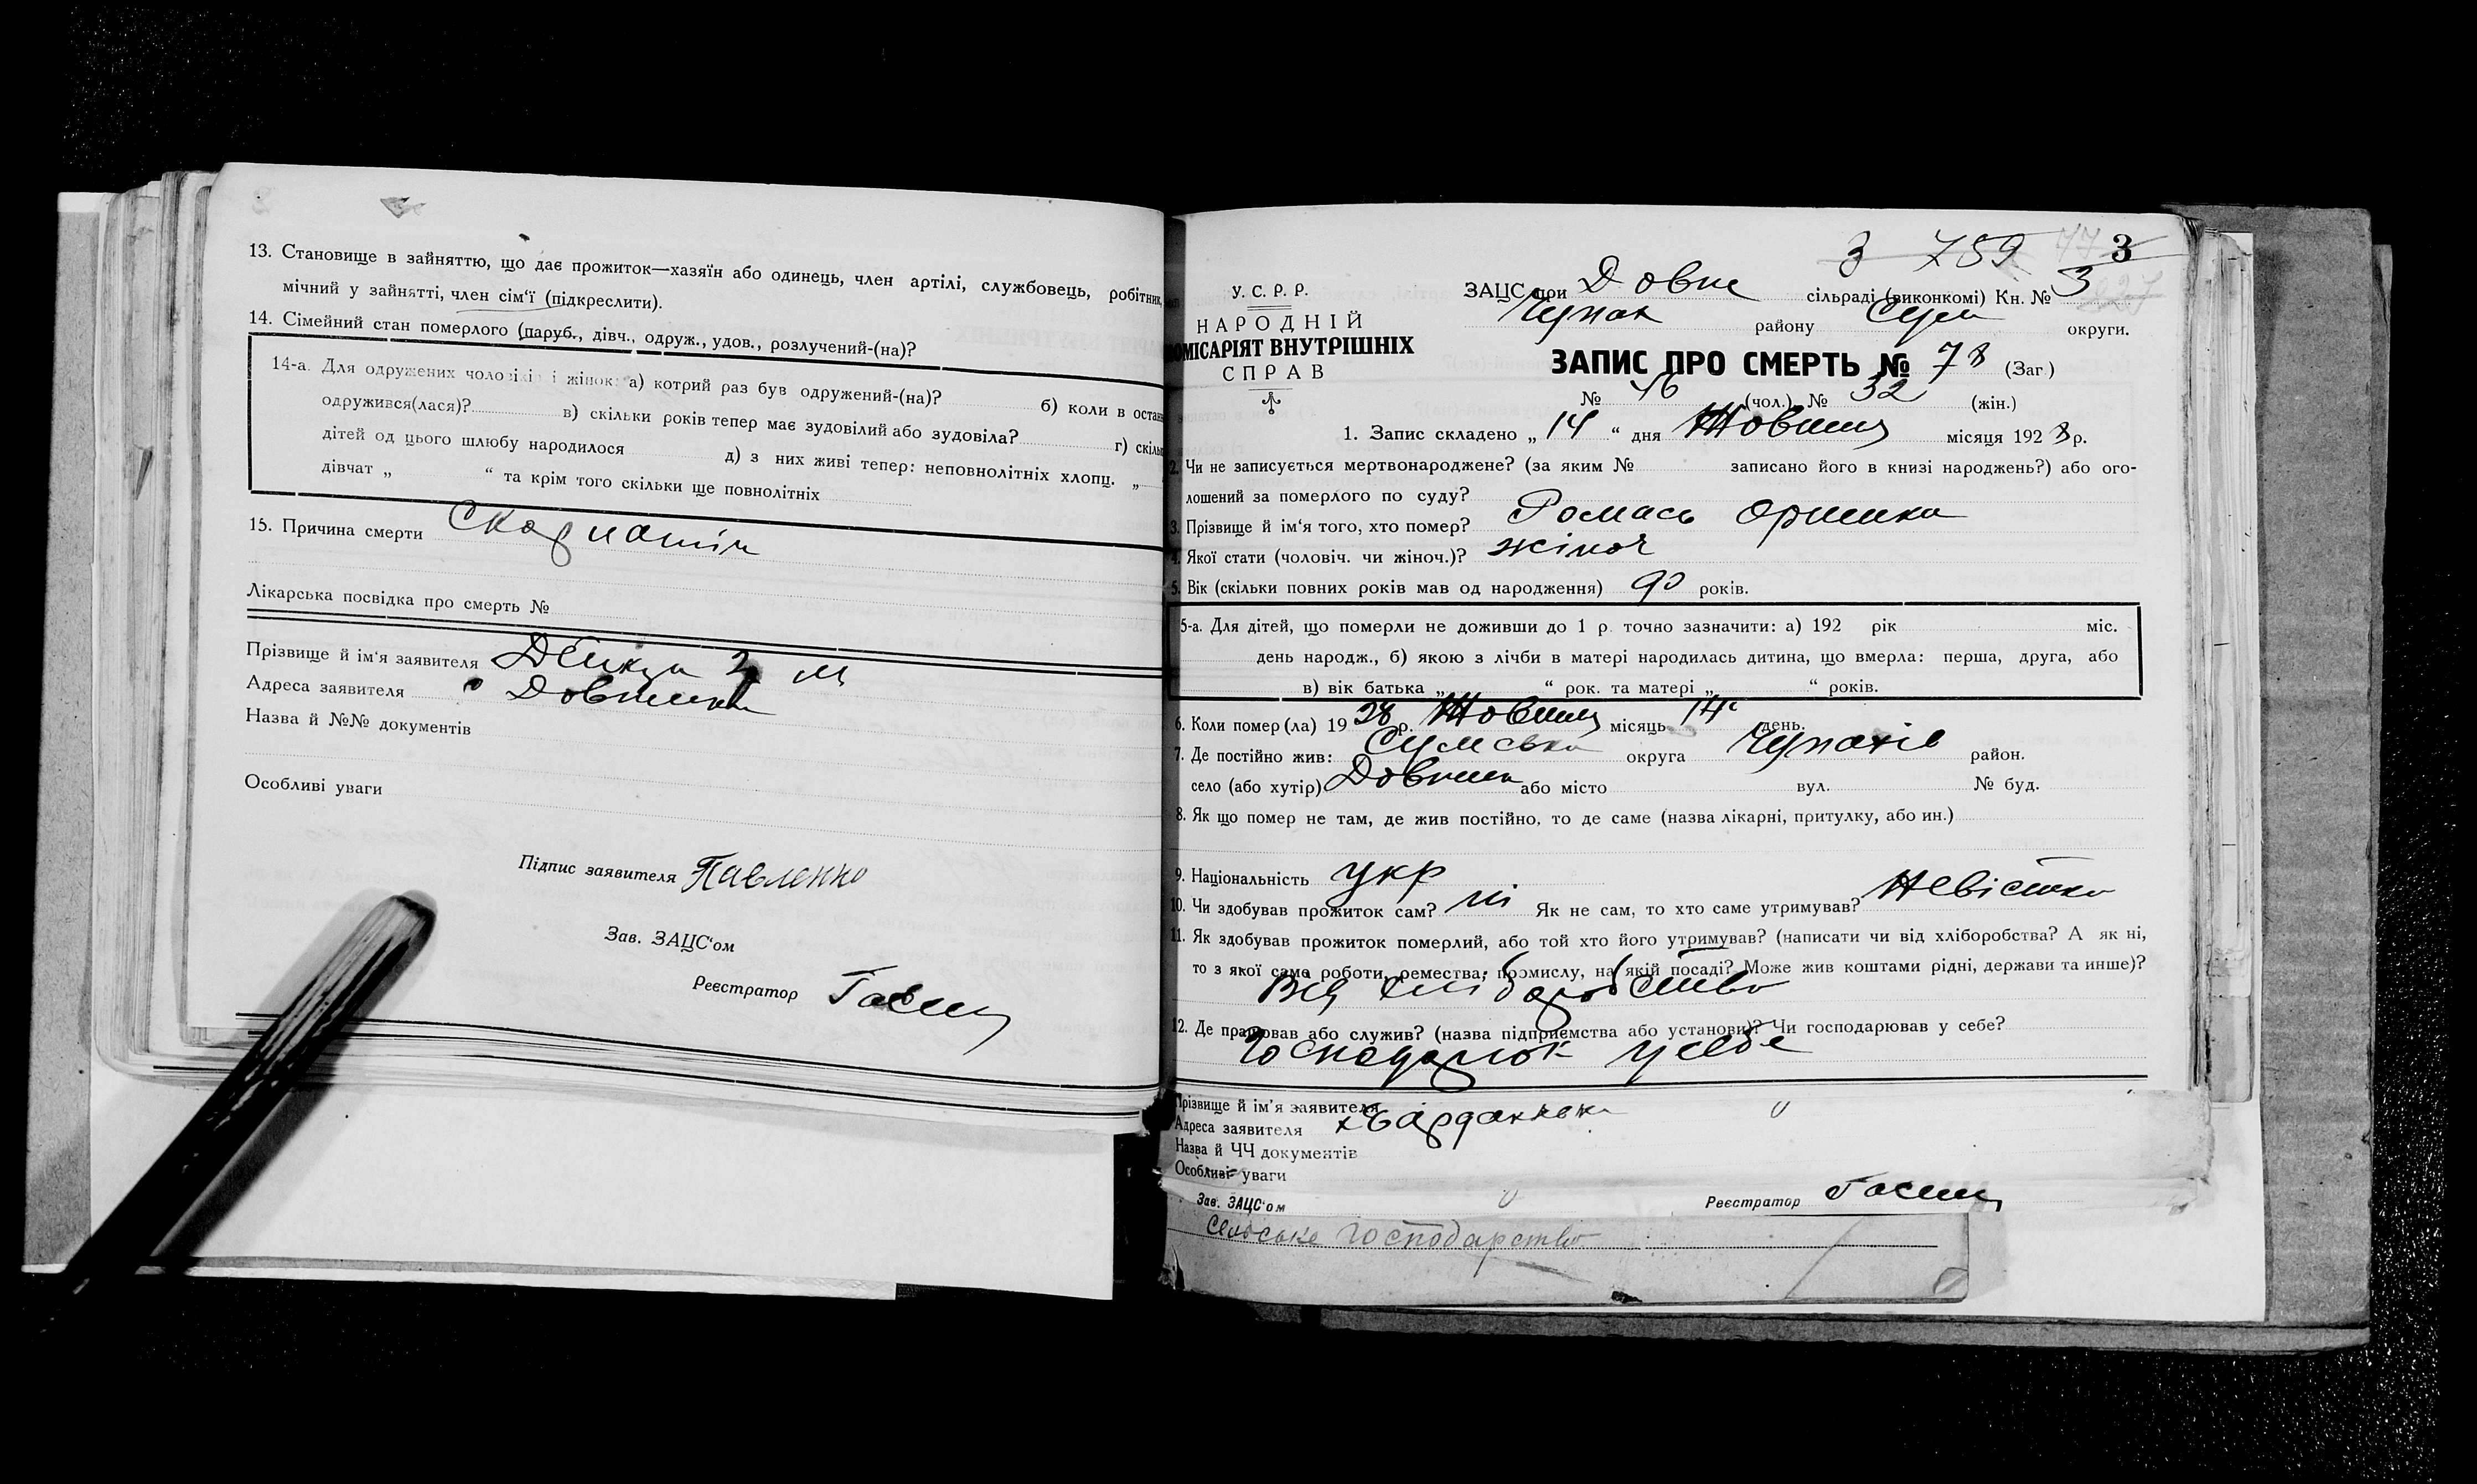 13. Становище в зайняттю, що дає прожиток—хазяїн або одинець, член артілі, службовець, робітник,
мічний у зайнятті, член сім'ї (підкреслити).
14. Сімейний стан померлого (паруб., дівч., одруж., удов., розлучений-(на)?
14-а. Для одружених чоловіків і жінок: а) котрий раз був одружений-(на)? б) коли в остан
одружився(лася)? в) скільки років тепер має зудовілий або зудовіла? г) скільк
дітей од цього шлюбу народилося д) з них живі тепер: неповнолітніх хлопц. „
дівчат „ “ та крім того скільки ще повнолітніх
15. Причина смерти Скарлатін
Лікарська посвідка про смерть №
Прізвище й ім'я заявителя
Адреса заявителя
Назва й №№ документів
Особливі уваги
Підпис заявителя Павленко
Зав. ЗАЦС'ом
Реєстратор
3 789 3
У. С. Р. Р.
НАРОДНІЙ
ОМІСАРІЯТ ВНУТРІШНІХ
СПРАВ
ЗАЦС при Довж сільраді (виконкомі) Кн. № 3
Чупах району Сум округи.
ЗАПИС ПРО СМЕРТЬ № 78 (Заг)
№ 46 (чол.) № 32 (жін.)
1. Запис складено „ 14 “ дня Жовтня місяця 1928 р.
2. Чи не записується мертвонароджене? (за яким № записано його в книзі народжень?) або ого-
лошений за померлого по суду?
3. Прізвище й ім'я того, хто помер? Ромась Оришка
4. Якої стати (чоловіч. чи жіноч.)? жіноч
5. Вік (скільки повних років мав од народження) 90 років.
5-а. Для дітей, що померли не доживши до 1 р. точно зазначити: а) 192 рік міс.
день народж., б) якою з лічби в матері народилась дитина, що вмерла: перша, друга, або
в) вік батька „ “ рок. та матері „ “ років.
6. Коли помер(ла) 1928 р. Жовтня місяць 14 день.
7. Де постійно жив: Сумська округа Чупахів район.
село (або хутір) або місто вул. № буд.
8. Як що помер не там, де жив постійно, то де саме (назва лікарні, притулку, або ин.)
9. Національність укр
10. Чи здобував прожиток сам? ні Як не сам, то хто саме утримував? Невістка
11. Як здобував прожиток померлий, або той хто його утримував? (написати чи від хліборобства? А як ні,
то з якої саме роботи, ремества, промислу, на якій посаді? Може жив коштами рідні, держави та инше)?
Від хліборобства
12. Де працював або служив? (назва підприємства або установи)? Чи господарював у себе?
усебе
Прізвище й ім'я заявителя
Адреса заявителя
Назва й ЧЧ документів
Особливі уваги
Зав. ЗАЦС'ом Реєстратор
Сільське господарство